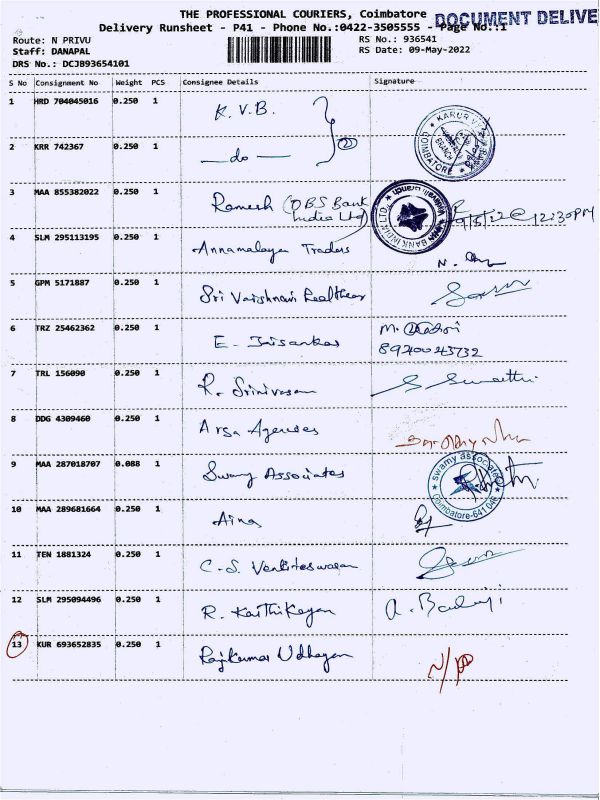 THE PROFESSIONAL COURIERS, Coimbatore
DOCUMENT DELIVE
Delivery Runsheet - P41 - Phone No.:0422-3505555 - Page No.:1
Route: N PRIVU
Staff: DANAPAL
DRS No.: DCJB93654101
RS No.: 936541
RS Date: 09-May-2022
S No Consignment No Weight PCS Consignee Details Signature
1 HRD 704045016 0.250 1 K.V.B.
KARUR COIMBATORE BRANCH
2 KRR 742367 0.250 1 — do — (2)
3 MAA 855382022 0.250 1 Ramesh (DBS Bank India Ltd)
BANK INDIA LTD
9/5/22 @ 12:30PM
4 SLM 295113195 0.250 1 Annamalayar Traders
5 GPM 5171887 0.250 1 Sri Vaishnavi
6 TRZ 25462362 0.250 1 E. Jaisankar M.
7 TRL 156090 0.250 1 R. Srinivasan
8 DDG 4309460 0.250 1 Arga Agencies
9 MAA 287018707 0.088 1 Swamy Associates
swamy associates Coimbatore-641
10 MAA 289681664 0.250 1 Aina
11 TEN 1881324 0.250 1 C.S. Venkiteswaran
12 SLM 295094496 0.250 1 R. Karthikeyan A. Balaji
13 KUR 693652835 0.250 1 Rajkumar Udhayan